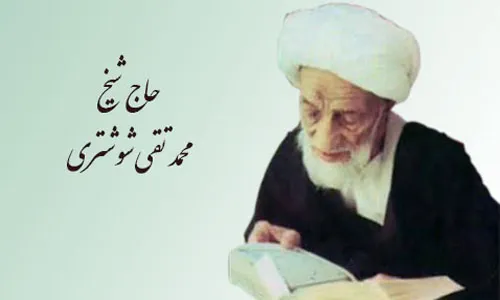 حاج شیخ
محمد تقی شوشتری